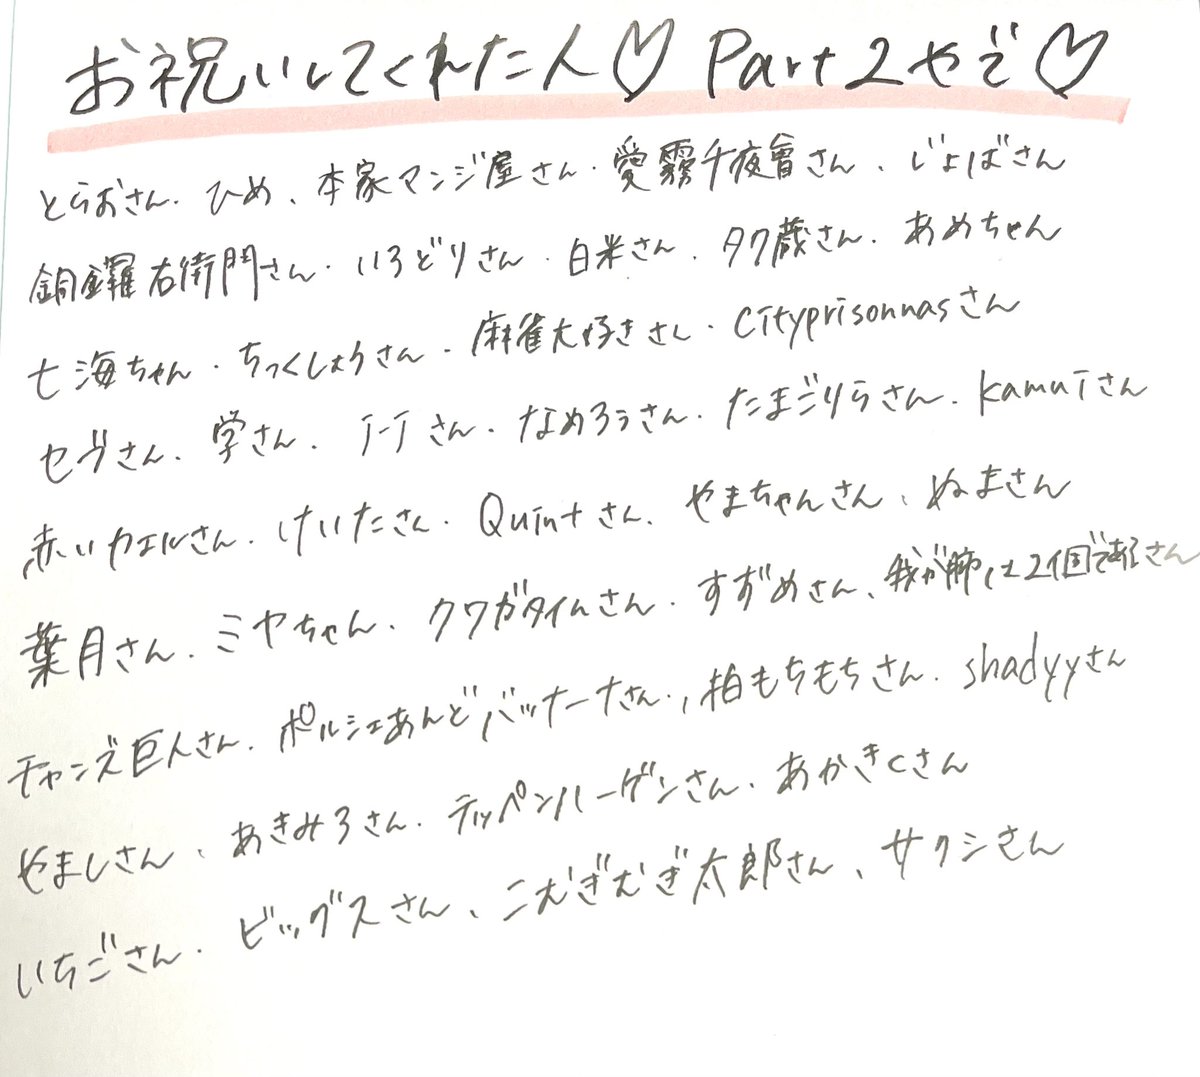 お祝いしてくれた人♡ Part2やで♡
とらおさん、ひめ、本家マンジ屋さん・愛霧千夜會さん、じょばさん
銅鑼右衛門さん・いろどりさん、白米さん、タク蔵さん、あめちゃん
七海ちゃん・ちっくしょうさん・麻雀大好きさん・cityprisonnasさん
セヴさん、学さん、J-Jさん、なめろぅさん、たまごりらさん、kamuiさん
赤いカエルさん、けいたさん・Quintさん、やまちゃんさん、ぬまさん
葉月さん、ミヤちゃん、クワガタイムさん・すずめさん、我が肺は2個であるさん
チャンズ巨人さん、ポルシェあんどバッナーナさん、柏もちもちさん、shadyyさん
やましさん、あきみろさん、テッペンハーゲンさん、あかきcさん
いちごさん・ビッグスさん、こむぎむぎ太郎さん、サクシさん